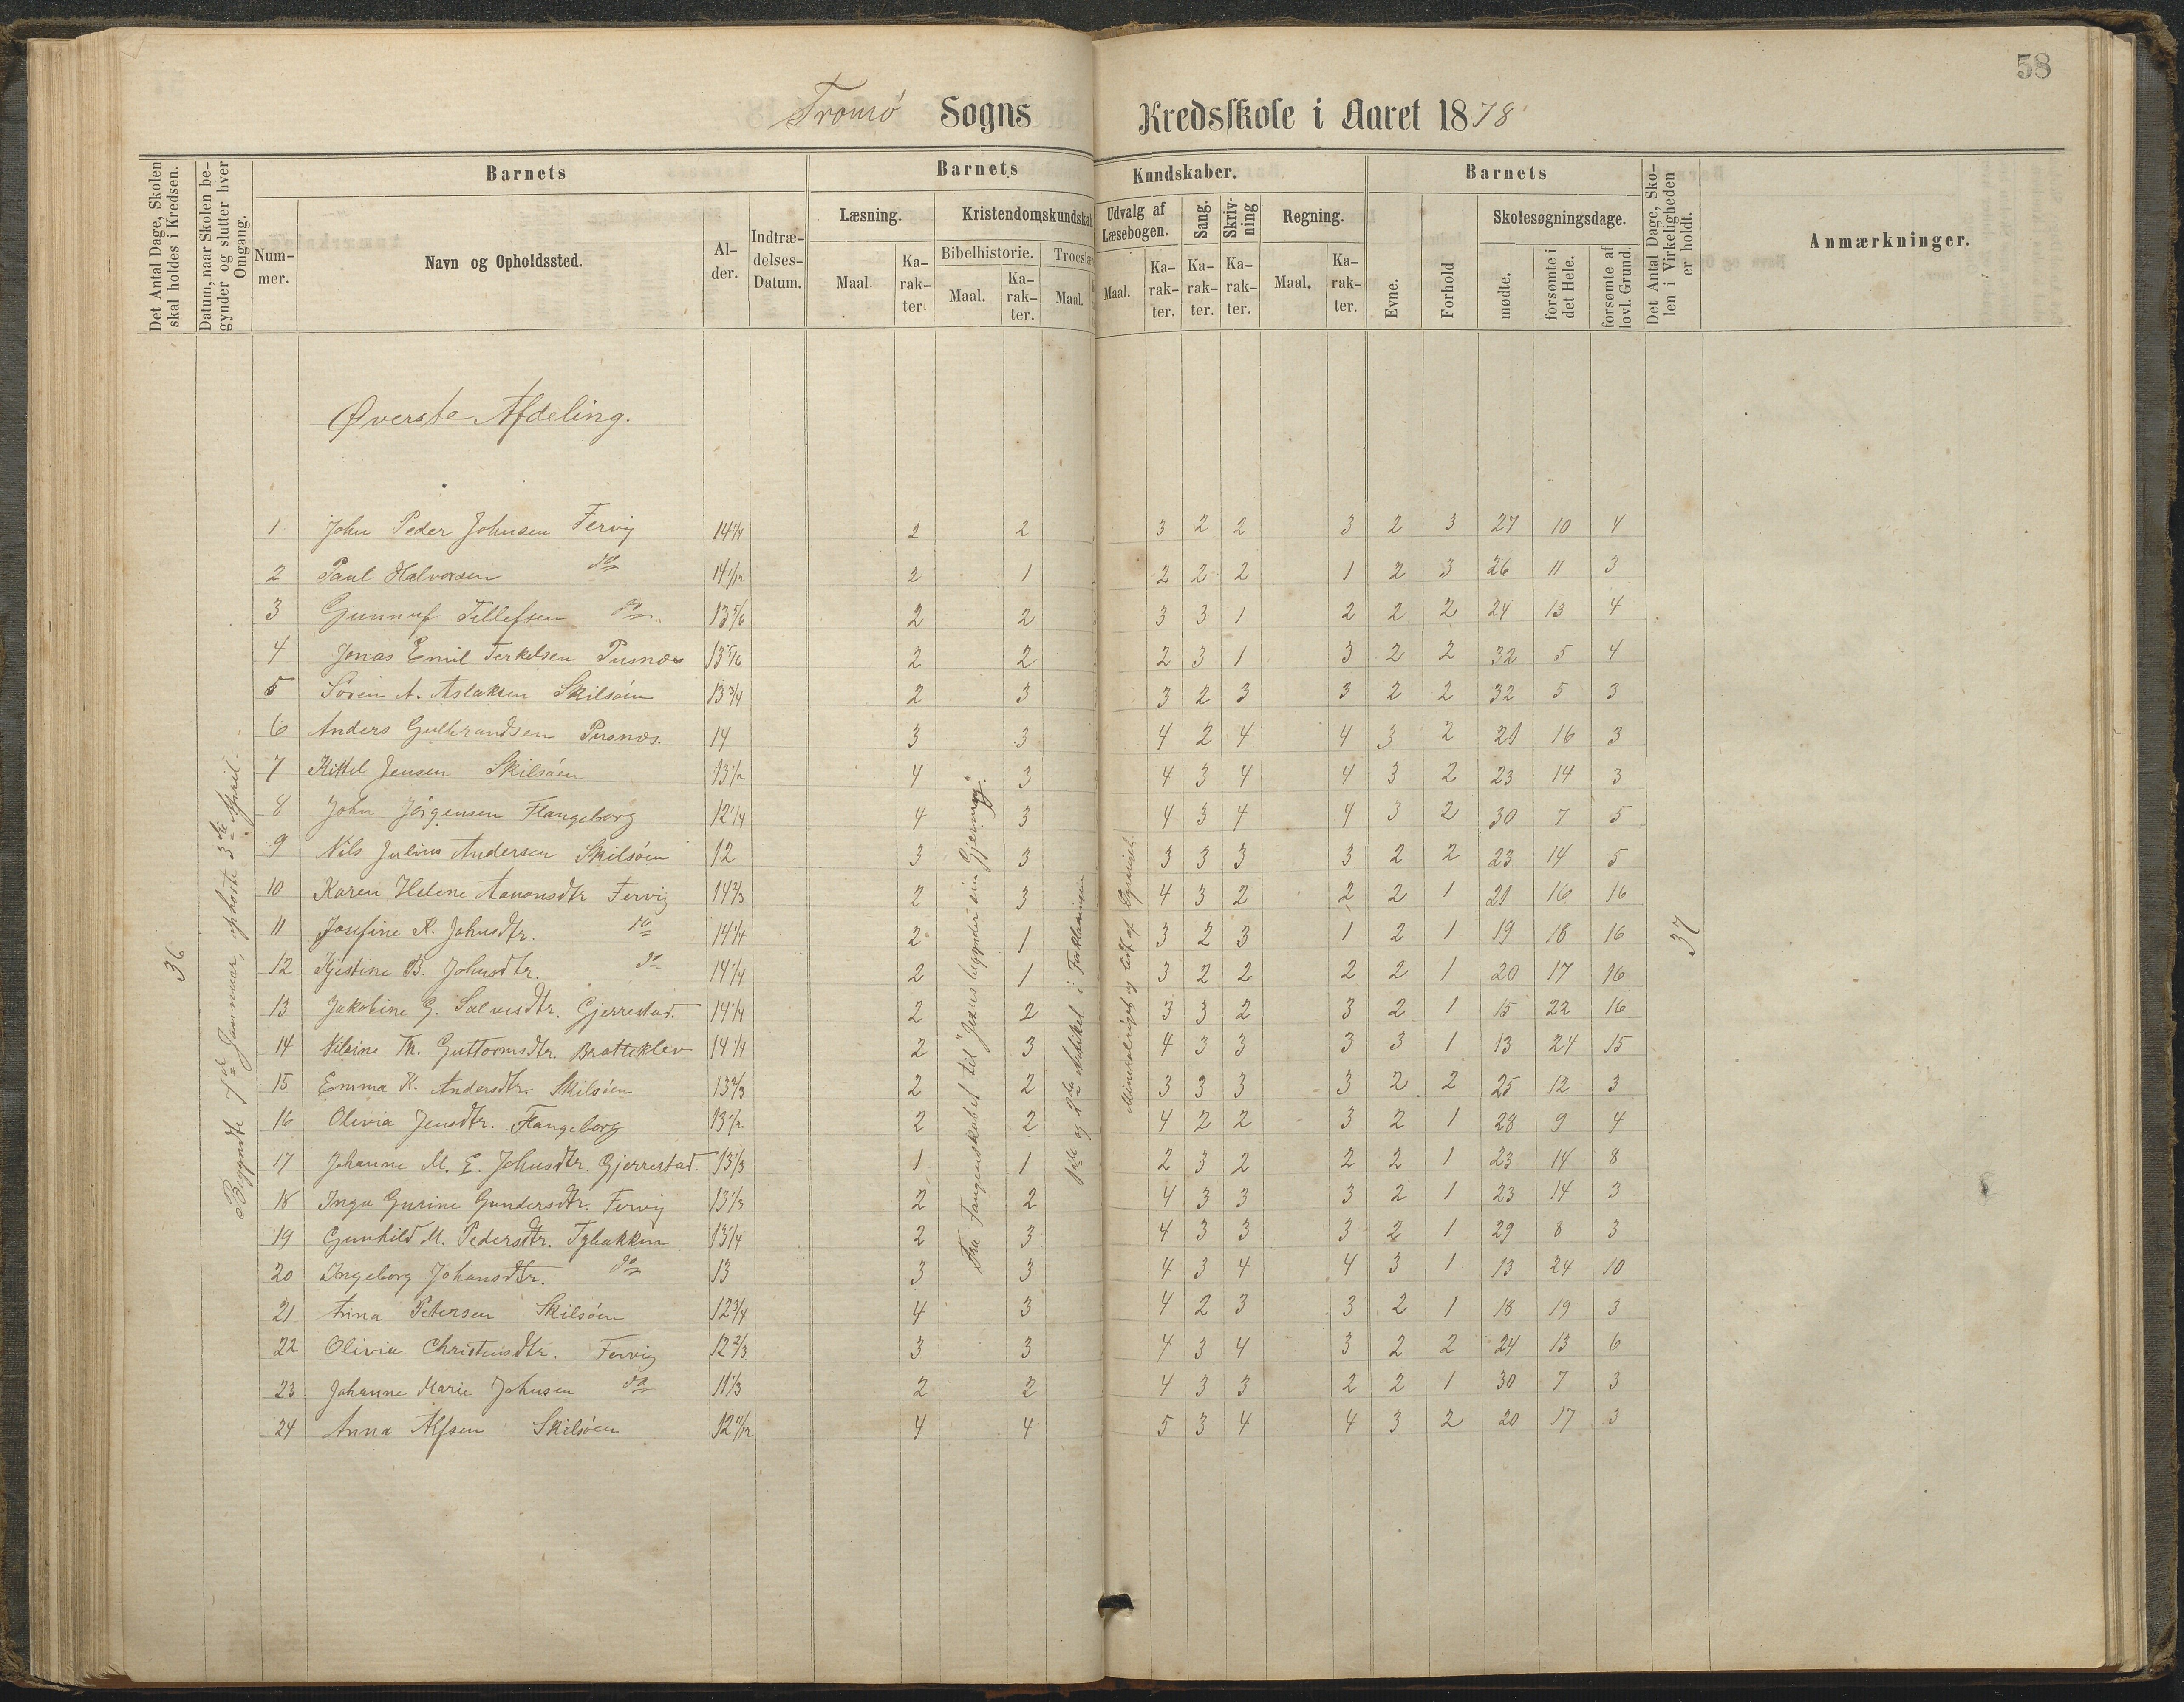 58
Tromö Sogns Kredsskole i Aaret 1878
Det Antal Dage, Skolen skal holdes i Kredsen.
Datum, naar Skolen begynder og slutter hver Omgang.
Barnets
Barnets Kundskaber.
Barnets
Det Antal Dage, Skolen i Virkeligheden er holdt.
Anmærkninger.
Nummer.
Navn og Opholdssted.
Alder.
Indtrædelses-Datum.
Læsning.
Kristendomskundskab
Udvalg af Læsebogen.
Sang.
Skrivning
Regning.
Evne.
Forhold
Skolesøgningsdage.
Bibelhistorie.
Troeslæ
Maal. Karakter. Maal. Karakter. Maal. Maal. Karakter. Karakter. Karakter. Maal. Karakter.
mødte. forsømte i det Hele. forsømte af lovl. Grund.
Øverste Afdeling.
36
Begyndte 7de Januar, ophørte 3die April.
Fra Fangenskabet til "Jesus begynder sin Gjerning".
1ste og 2den Artikel i Forklaringen
37
1 John Peder Johnsen Fervig 14 1/4 2 2 3 2 2 3 2 3 27 10 4
2 Paul Halvorsen do 14 1/12 2 1 2 2 2 1 2 3 26 11 3
3 Gunnuf Tellefsen do 13 5/6 2 2 3 3 1 2 2 2 24 13 4
4 Jonas Emil Terkelsen Pusnæs 13 5/6 2 2 2 3 1 3 2 2 32 5 4
5 Sören A. Aslaksen Skilsöen 13 3/4 2 3 3 2 3 3 2 2 32 5 3
6 Anders Gulbrandsen Pusnæs. 14 3 3 4 2 4 4 3 2 21 16 3
7 Kittel Jensen Skilsöen 13 1/2 4 3 4 3 4 4 3 2 23 14 3
8 John Jörgensen Flangeborg 12 1/4 4 3 4 3 4 4 3 2 30 7 5
9 Nils Julius Andersen Skilsöen 12 3 3 3 3 3 3 2 2 23 14 5
10 Karen Helene Aanonsdtr Fervig 14 2/3 2 3 4 3 2 2 2 1 21 16 16
11 Josefine K. Johnsdtr. do 14 1/4 2 1 3 2 3 1 2 1 19 18 16
12 Kjestine B. Johnsdtr. do 14 1/4 2 1 3 2 2 2 2 1 20 17 16
13 Jakobine G. Salvesdtr. Gjerrestad. 14 1/4 2 2 3 3 2 3 2 1 15 22 16
14 Nilsine Th. Guttormsdtr. Bratteklev 14 1/4 2 3 4 3 3 3 3 1 13 24 15
15 Emma K. Andersdtr. Skilsöen 13 2/3 2 2 3 3 3 3 2 2 25 12 3
16 Olivia Jensdtr. Flangeborg 13 1/2 2 2 4 2 2 3 2 1 28 9 4
17 Johanne M. E. Johnsdtr. Gjerrestad. 13 1/3 1 1 2 3 2 2 2 1 23 14 8
18 Inga Gurine Gundersdtr. Fervig 13 1/3 2 2 4 3 3 3 2 1 23 14 3
19 Gunhild M. Pedersdtr. Tybakken 13 1/4 2 3 4 3 3 3 2 1 29 8 3
20 Ingeborg Johansdtr. do 13 3 3 4 3 4 4 3 1 13 24 10
21 Anna Petersen Skilsöen 12 3/4 4 3 4 2 3 3 2 1 18 19 3
22 Olivia Christensdtr. Fervig 12 2/3 3 3 4 3 4 3 2 2 24 13 6
23 Johanne Marie Johnsen do 11 1/3 2 2 4 3 3 2 2 1 30 7 3
24 Anna Alfsen Skilsöen 12 11/12 4 4 5 3 4 4 3 2 20 17 3